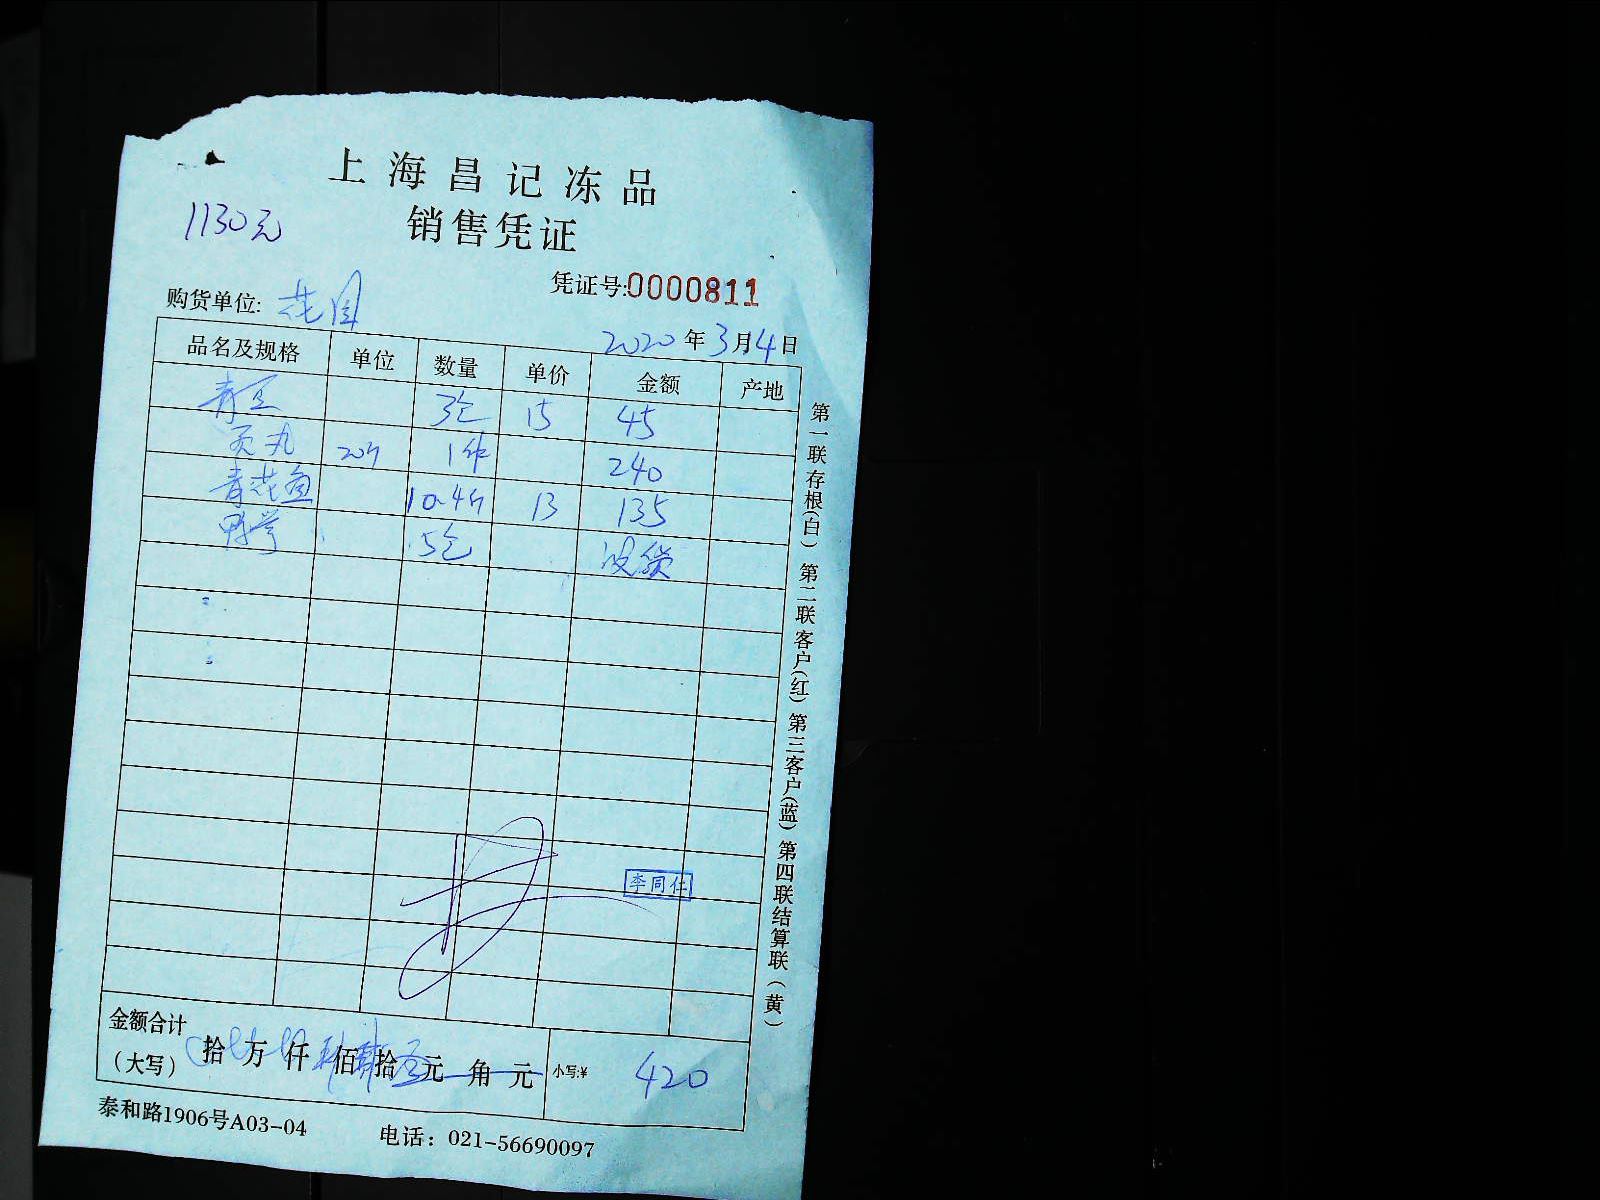 上海昌记冻品
销售凭证
1130元
凭证号:0000811
购货单位: 花园
2020年3月4日
品名及规格 单位 数量 单价 金额 产地
青豆 3包 15 45
贡丸 20斤 1件 240
青花鱼 10.4斤 13 135
鸭掌 5包 没货
李同仁
金额合计
(大写) 拾 万 仟 佰 拾 元 角 元 小写:¥ 420
泰和路1906号A03-04 电话: 021-56690097
第一联存根(白) 第二联客户(红) 第三客户(蓝) 第四联结算联(黄)